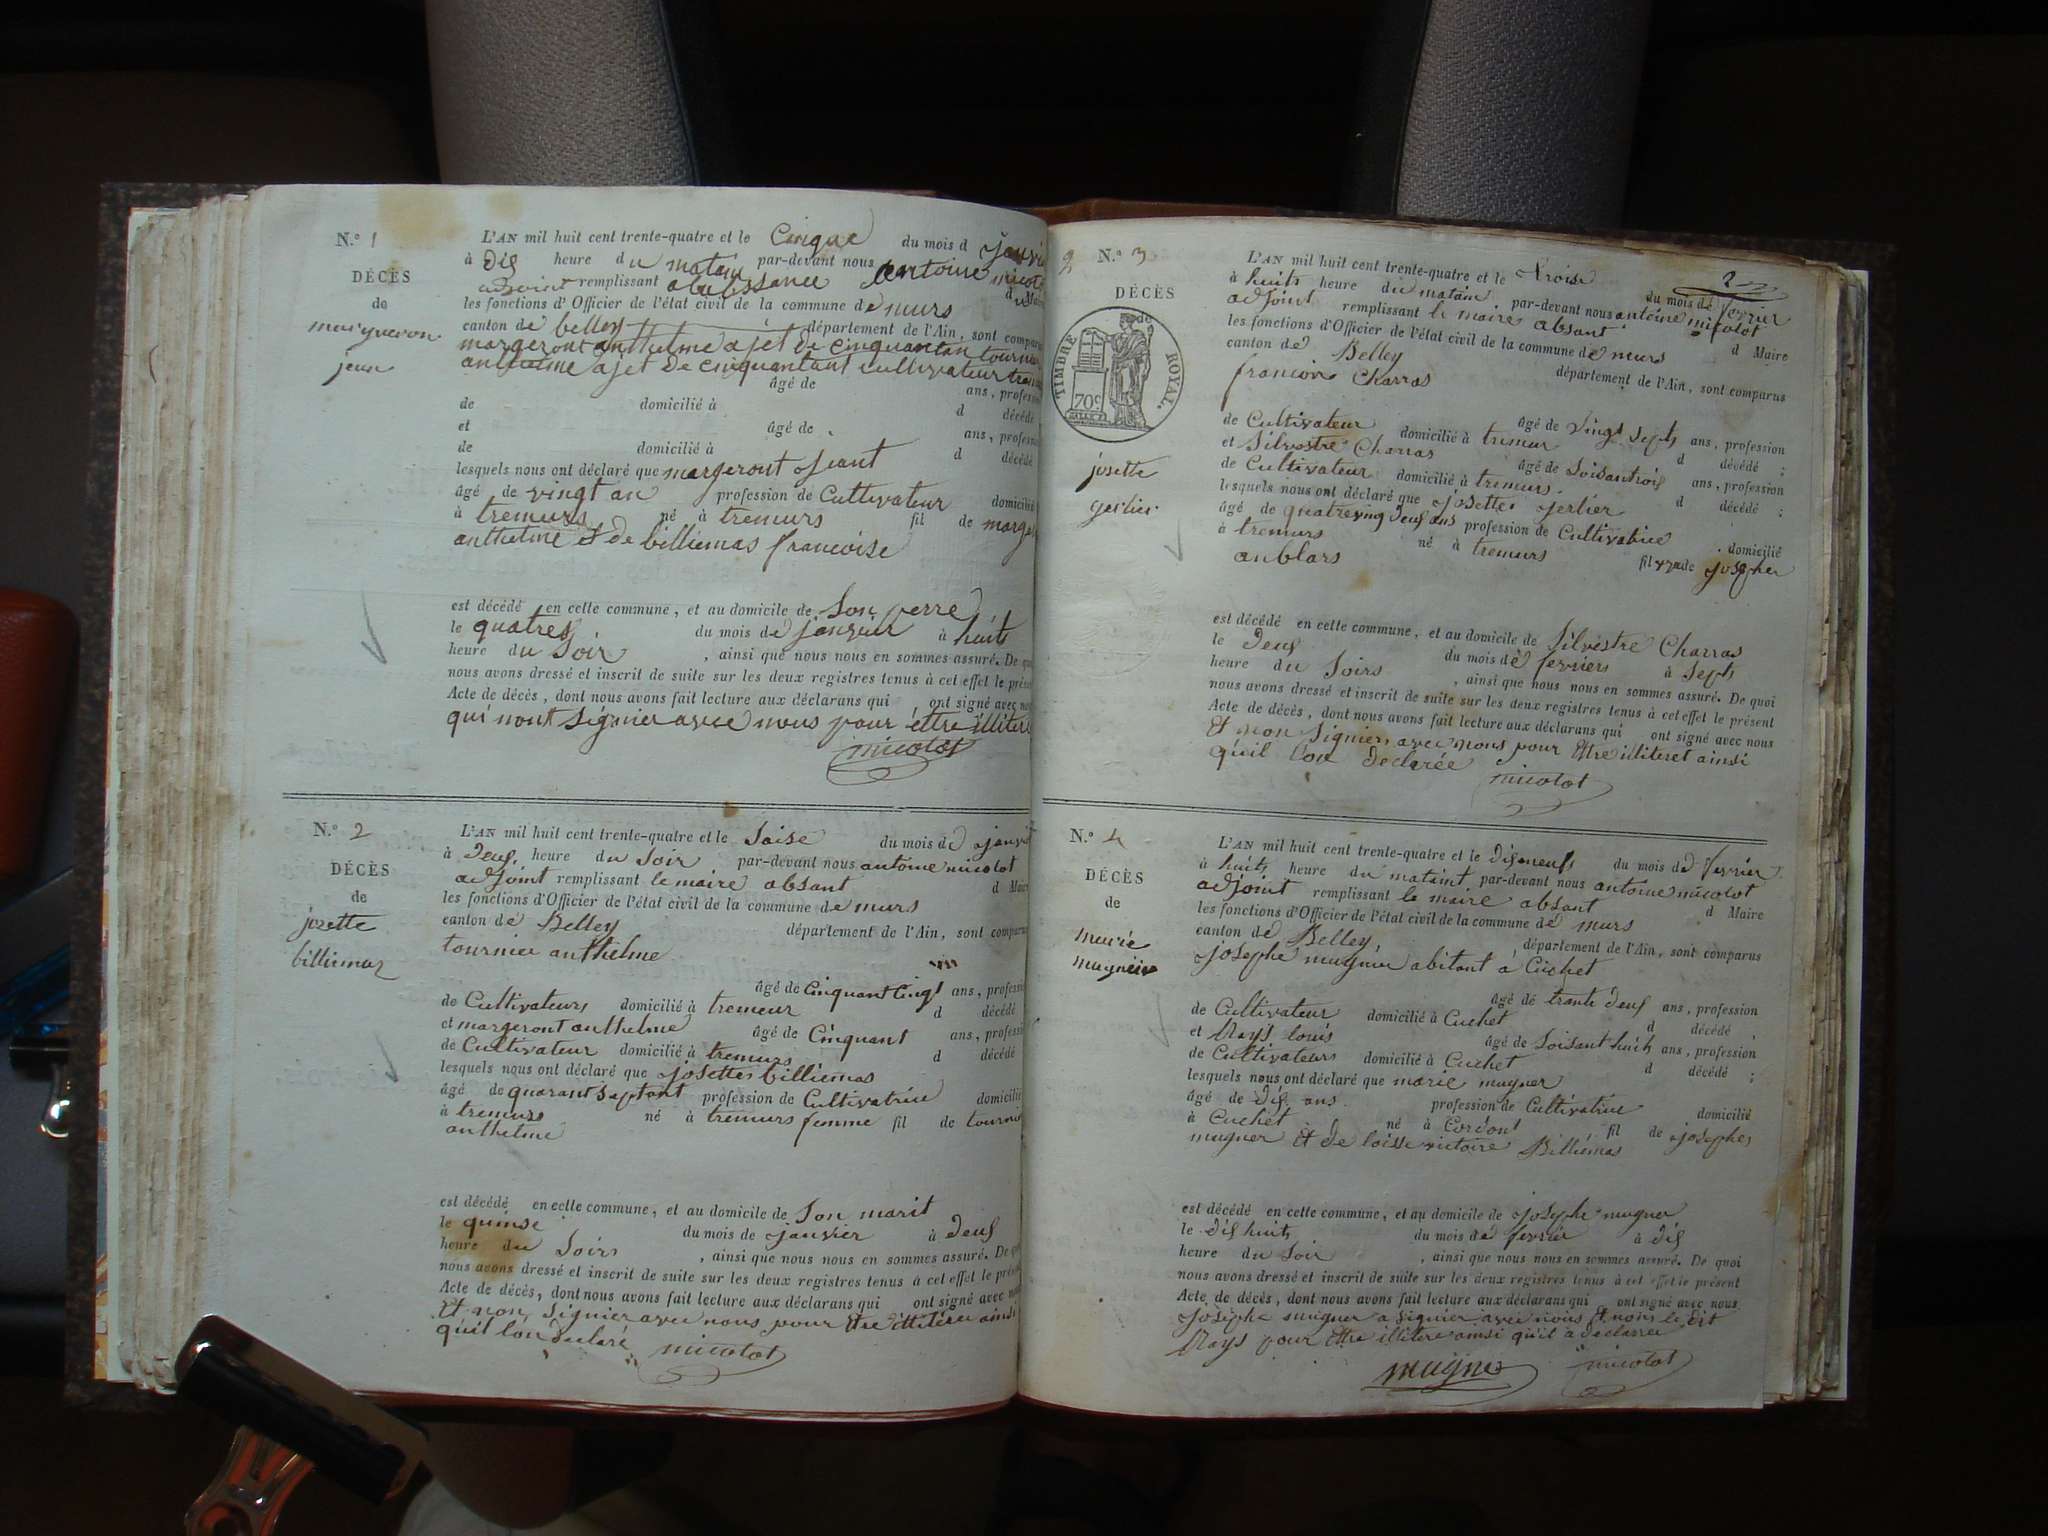 N.° 1
DÉCÈS
de
maigneron
jean
L'AN mil huit cent trente-quatre et le Cinque du mois d janvi
à Dis heure du matain par-devant nous antoine micolot
adjoint remplissant d Maire
les fonctions d'Officier de l'état civil de la commune de murs
canton de belley département de l'Ain, sont comparus
margeront anthelme ajet de cinquantan tournier
anthelme ajet De cinquantant cultivateur
âgé de ans, profession
de domicilié à d décédé
et âgé de ans, profession
de domicilié à d décédé
lesquels nous ont déclaré que margeront Jeant
âgé de vingt an profession de Cultivateur domicilié
à tremurs né à tremurs fil de marge
anthelme et de billiemas francoise
est décédé en cette commune, et au domicile de Son perre
le quatres du mois de janvier à huits
heure du Soir , ainsi que nous nous en sommes assuré. De quoi
nous avons dressé et inscrit de suite sur les deux registres tenus à cet effet le présent
Acte de décès, dont nous avons fait lecture aux déclarans qui ont signé avec nous
qui nont Signier avec nous pour ettre illitere
micolot
N.° 2
DÉCÈS
de
jozette
billiemaz
L'AN mil huit cent trente-quatre et le Saise du mois de janvi
à Deus heure du Soir par-devant nous antoine micolot
adjoint remplissant le maire absant d Maire
les fonctions d'Officier de l'état civil de la commune de murs
canton de Belley département de l'Ain, sont comparus
tournier anthelme
âgé de Cinquant Cinq ans, profession
de Cultivateurs domicilié à tremeur d décédé
et margeront anthelme âgé de Cinquant ans, profession
de Cultivateur domicilié à tremurs d décédé
lesquels nous ont déclaré que josettes billiemas
âgé de quarant septant profession de Cultivatrice domicilié
à tremurs né à tremurs femme fil de tournie
anthelme
est décédé en cette commune, et au domicile de Son marit
le quinse du mois de janvier à Deus
heure du Soirs , ainsi que nous nous en sommes assuré. De quoi
nous avons dressé et inscrit de suite sur les deux registres tenus à cet effet le présent
Acte de décès, dont nous avons fait lecture aux déclarans qui ont signé avec nous
Et non Signier avec nous pour Etre illitere ainsi
qu'il lon declaré micolot
2
N.° 3
DÉCÈS
de
TIMBRE ROYAL.
70c
josette
gerlier
2
L'AN mil huit cent trente-quatre et le troise du mois de fevrier
à huits heure du matain par-devant nous antoine micolot
adjoint remplissant le maire absant d Maire
les fonctions d'Officier de l'état civil de la commune de murs
canton de Belley département de l'Ain, sont comparus
francois Charras
âgé de vingt septs ans, profession
de Cultivateur domicilié à tremur d décédé ;
et Silvestre Charras âgé de Soisantrois ans, profession
de Cultivateur domicilié à tremurs d décédé ;
lesquels nous ont déclaré que josettes jerlier
âgé de quatreving Deus ans profession de Cultivatrice domicilié
à tremurs né à tremurs fil de josepher
anblars
est décédé en cette commune, et au domicile de Silvestre Charras
le Deus du mois de fevriers à Septs
heure du Soirs , ainsi que nous nous en sommes assuré. De quoi
nous avons dressé et inscrit de suite sur les deux registres tenus à cet effet le présent
Acte de décès, dont nous avons fait lecture aux déclarans qui ont signé avec nous
Et non Signier avec nous pour Ettre illiteret ainsi
qu'il lon declarée micolot
N.° 4
DÉCÈS
de
marie
magnin
L'AN mil huit cent trente-quatre et le Disneufs du mois de fevrier
à huits heure du mataint par-devant nous antoine micolot
adjoint remplissant le maire absant d Maire
les fonctions d'Officier de l'état civil de la commune de murs
canton de Belley, département de l'Ain, sont comparus
josephe mugner abitant à Cuchet
âgé de trante Deus ans, profession
de Cultivateur domicilié à Cuchet d décédé ,
et Nays louis âgé de Soisant huits ans, profession
de Cultivateurs domicilié à Cuchet d décédé ;
lesquels nous ont déclaré que marie mugner
âgé de dis ans profession de Cultivatrice domicilié
à Cuchet né à Cordont fil de josephes
mugner Et de loisse victoire Billiemas
est décédé en cette commune, et au domicile de josephe mugner
le dis huits du mois de fevrier à dis
heure du Soir , ainsi que nous nous en sommes assuré. De quoi
nous avons dressé et inscrit de suite sur les deux registres tenus à cet effet le présent
Acte de décès, dont nous avons fait lecture aux déclarans qui ont signé avec nous
josephe mugner a Signier avec nous Et nons le dit
Nays pour Ettre illitere ainsi qu'il a declarree
mugner micolot